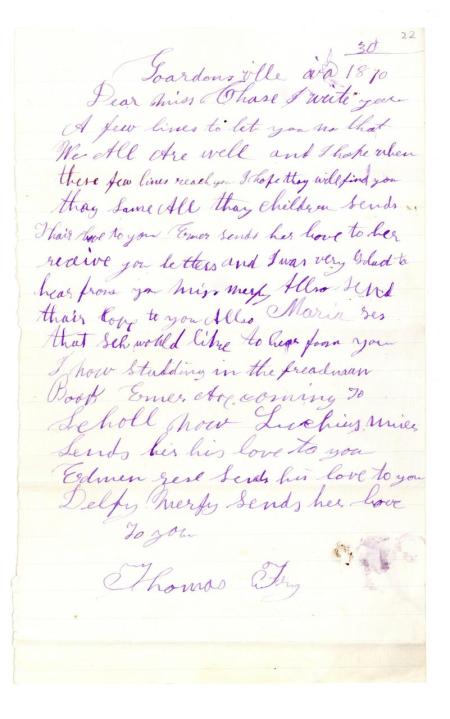 22
30
Goardonsville 1870
Dear miss Chase I write you
A few lines to let you no that
We All Are well and I hope when
these few lines reach you I hope thay will find you
thay Same All thay children Sends
thair love to you Emer Sends her love to her
recive you letters and I was very Glad to
hear from you miss merfy Allso Send
thair to you Allso Maria ses
that Seh would like to hear from you
I now Studding in the freadman
Book Emer Are coming to
Scholl now miles
Sends his love to you
Edmen Sends his love to you
Delfy Merfy Sends her love
To you
Thomas